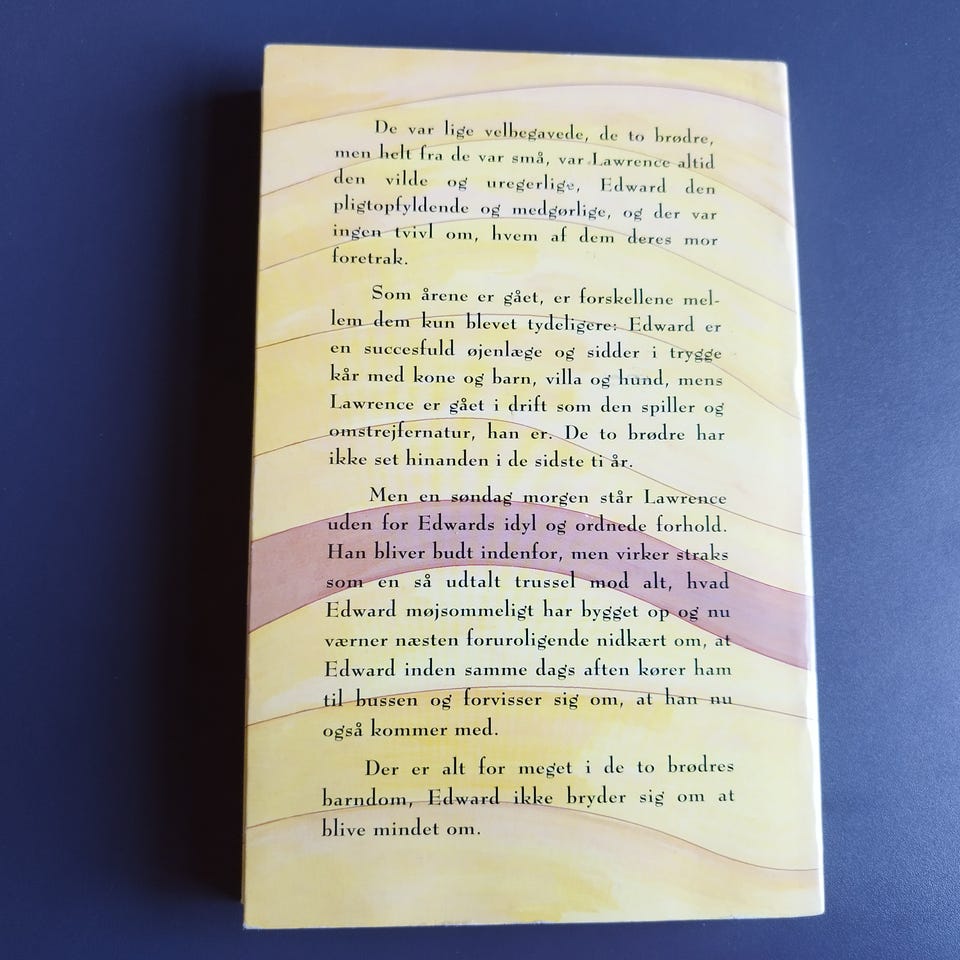 De var lige velbegavede, de to brødre,
men helt fra de var små, var Lawrence altid
den vilde og uregerlige, Edward den
pligtopfyldende og medgørlige, og der var
ingen tvivl om, hvem af dem deres mor
foretrak.
Som årene er gået, er forskellene mel-
lem dem kun blevet tydeligere: Edward er
en succesfuld øjenlæge og sidder i trygge
kår med kone og barn, villa og hund, mens
Lawrence er gået i drift som den spiller og
omstrejfernatur, han er. De to brødre har
ikke set hinanden i de sidste ti år.
Men en søndag morgen står Lawrence
uden for Edwards idyl og ordnede forhold.
Han bliver budt indenfor, men virker straks
som en så udtalt trussel mod alt, hvad
Edward møjsommeligt har bygget op og nu
værner næsten foruroligende nidkært om, at
Edward inden samme dags aften kører ham
til bussen og forvisser sig om, at han nu
også kommer med.
Der er alt for meget i de to brødres
barndom, Edward ikke bryder sig om at
blive mindet om.